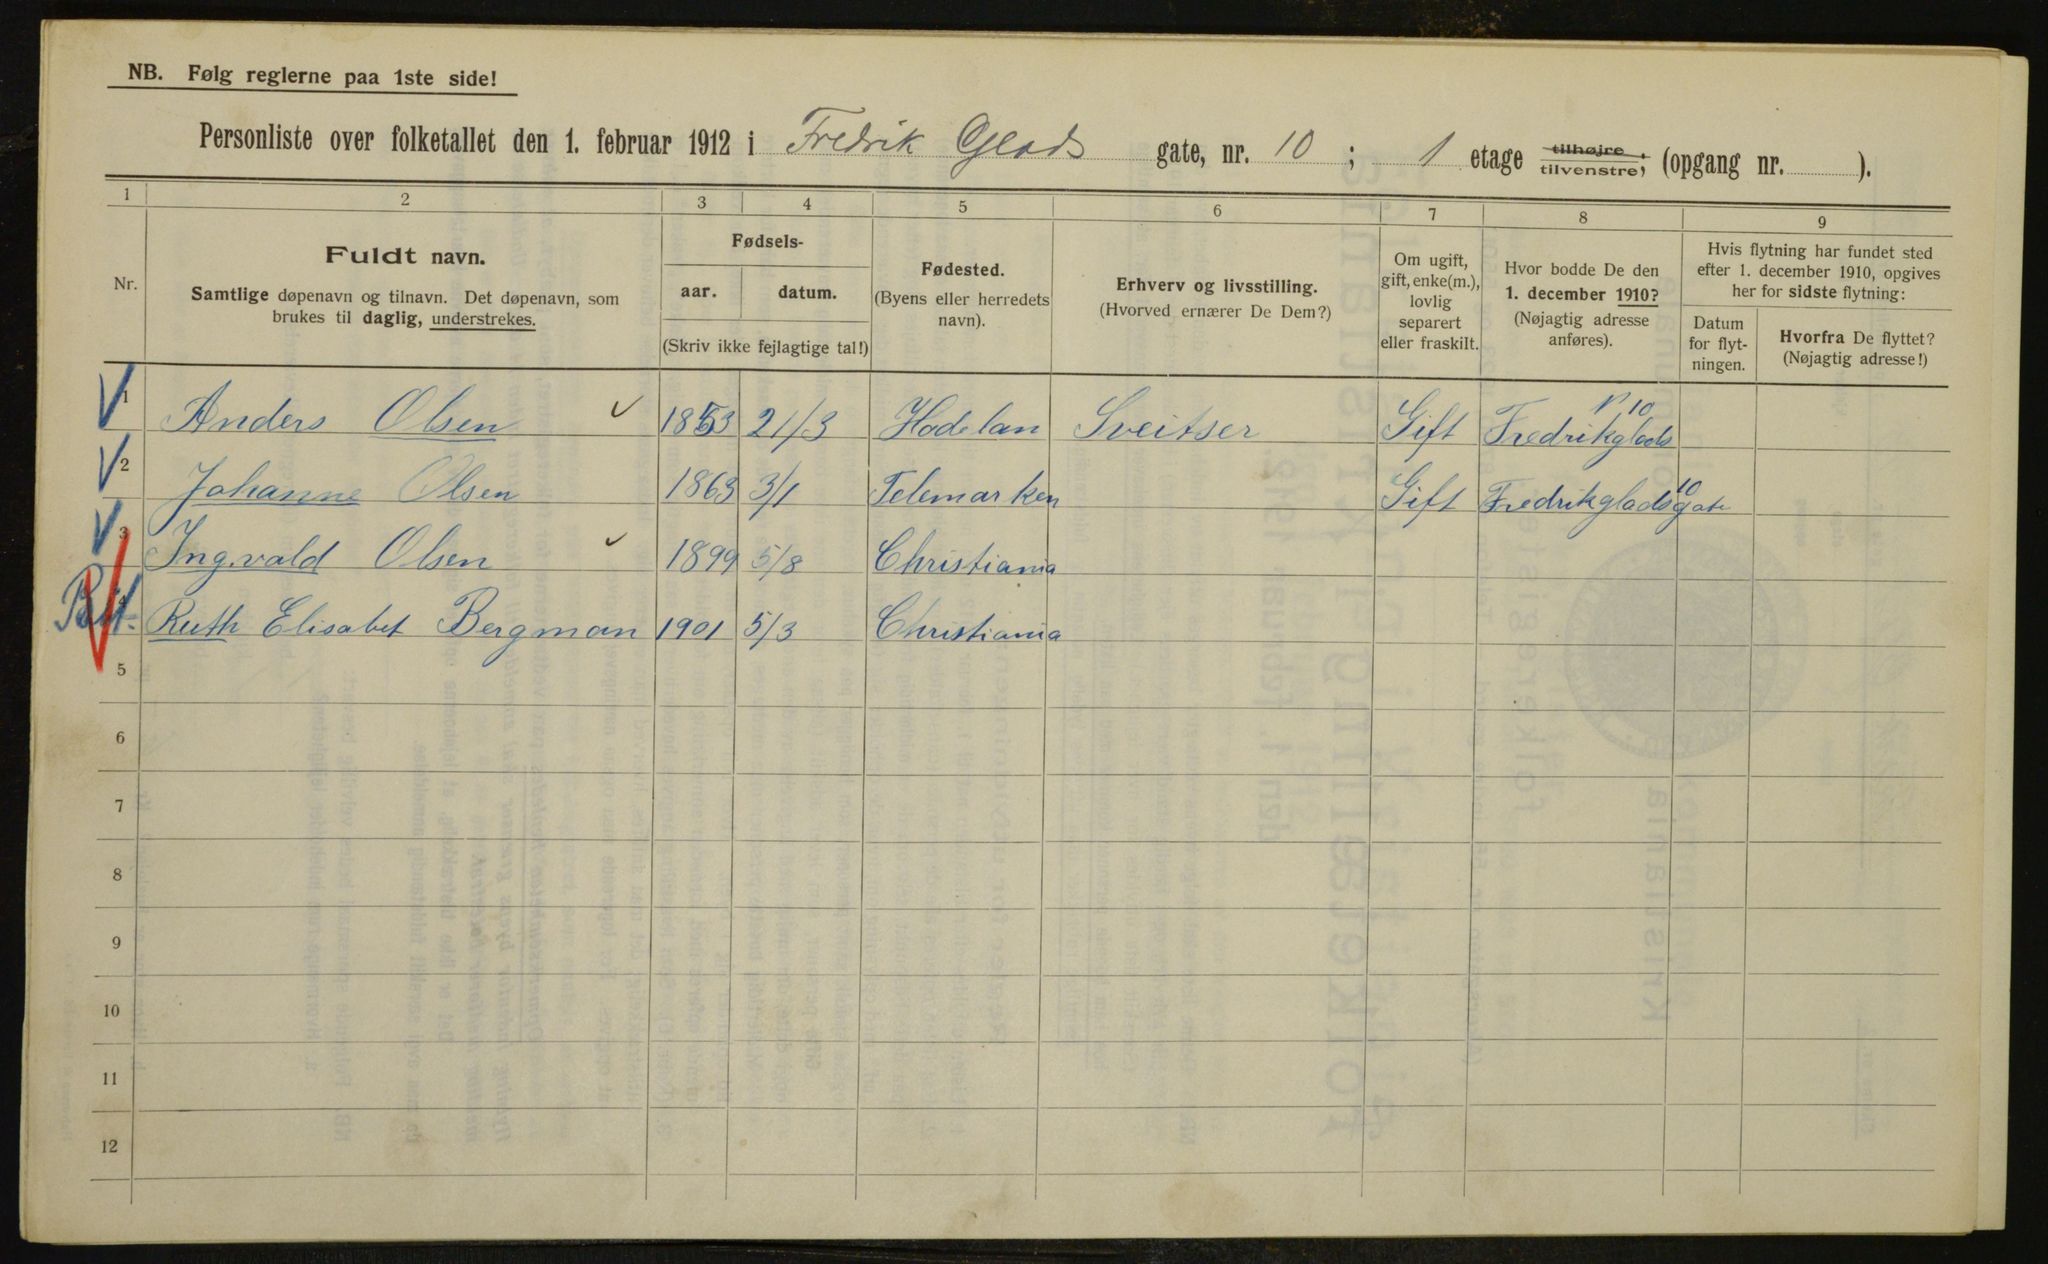 NB. Følg reglerne paa 1ste side!
Personliste over folketallet den 1. februar 1912 i Fredrik Glads gate, nr. 10 ; 1 etage tilhøjre, tilvenstre, (opgang nr. ).
1 2 3 4 5 6 7 8 9
Nr.
Fuldt navn.
Samtlige døpenavn og tilnavn. Det døpenavn, som
brukes til daglig, understrekes.
Fødsels-
aar. datum.
(Skriv ikke fejlagtige tal!)
Fødested.
(Byens eller herredets
navn).
Erhverv og livsstilling.
(Hvorved ernærer De Dem?)
Om ugift,
gift, enke(m.),
lovlig
separert
eller fraskilt.
Hvor bodde De den
1. december 1910?
(Nøjagtig adresse
anføres).
Hvis flytning har fundet sted
efter 1. december 1910, opgives
her for sidste flytning:
Datum
for flyt-
ningen.
Hvorfra De flyttet?
(Nøjagtig adresse!)
1 Anders Olsen 1853 21/3 Hadelan Sveitser Gift Fredrikglads N 10
2 Johanne Olsen 1863 3/1 Telemarken Gift Fredrikgladsgate 10
3 Ingvald Olsen 1899 5/8 Christiania
4 Ruth Elisabet Bergman 1901 5/3 Christiania
5
6
7
8
9
10
11
12